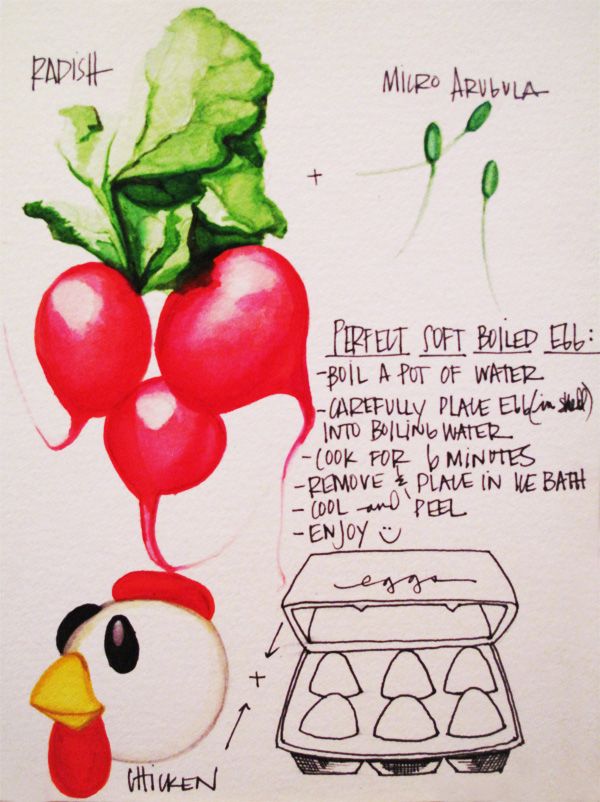 RADISH
MICRO ARUGULA
+
PERFECT SOFT BOILED EGG:
-BOIL A POT OF WATER
-CAREFULLY PLACE EGG (in shell)
INTO BOILING WATER
-COOK FOR 6 MINUTES
-REMOVE & PLACE IN ICE BATH
-COOL and PEEL
-ENJOY ☺
eggs
+
CHICKEN